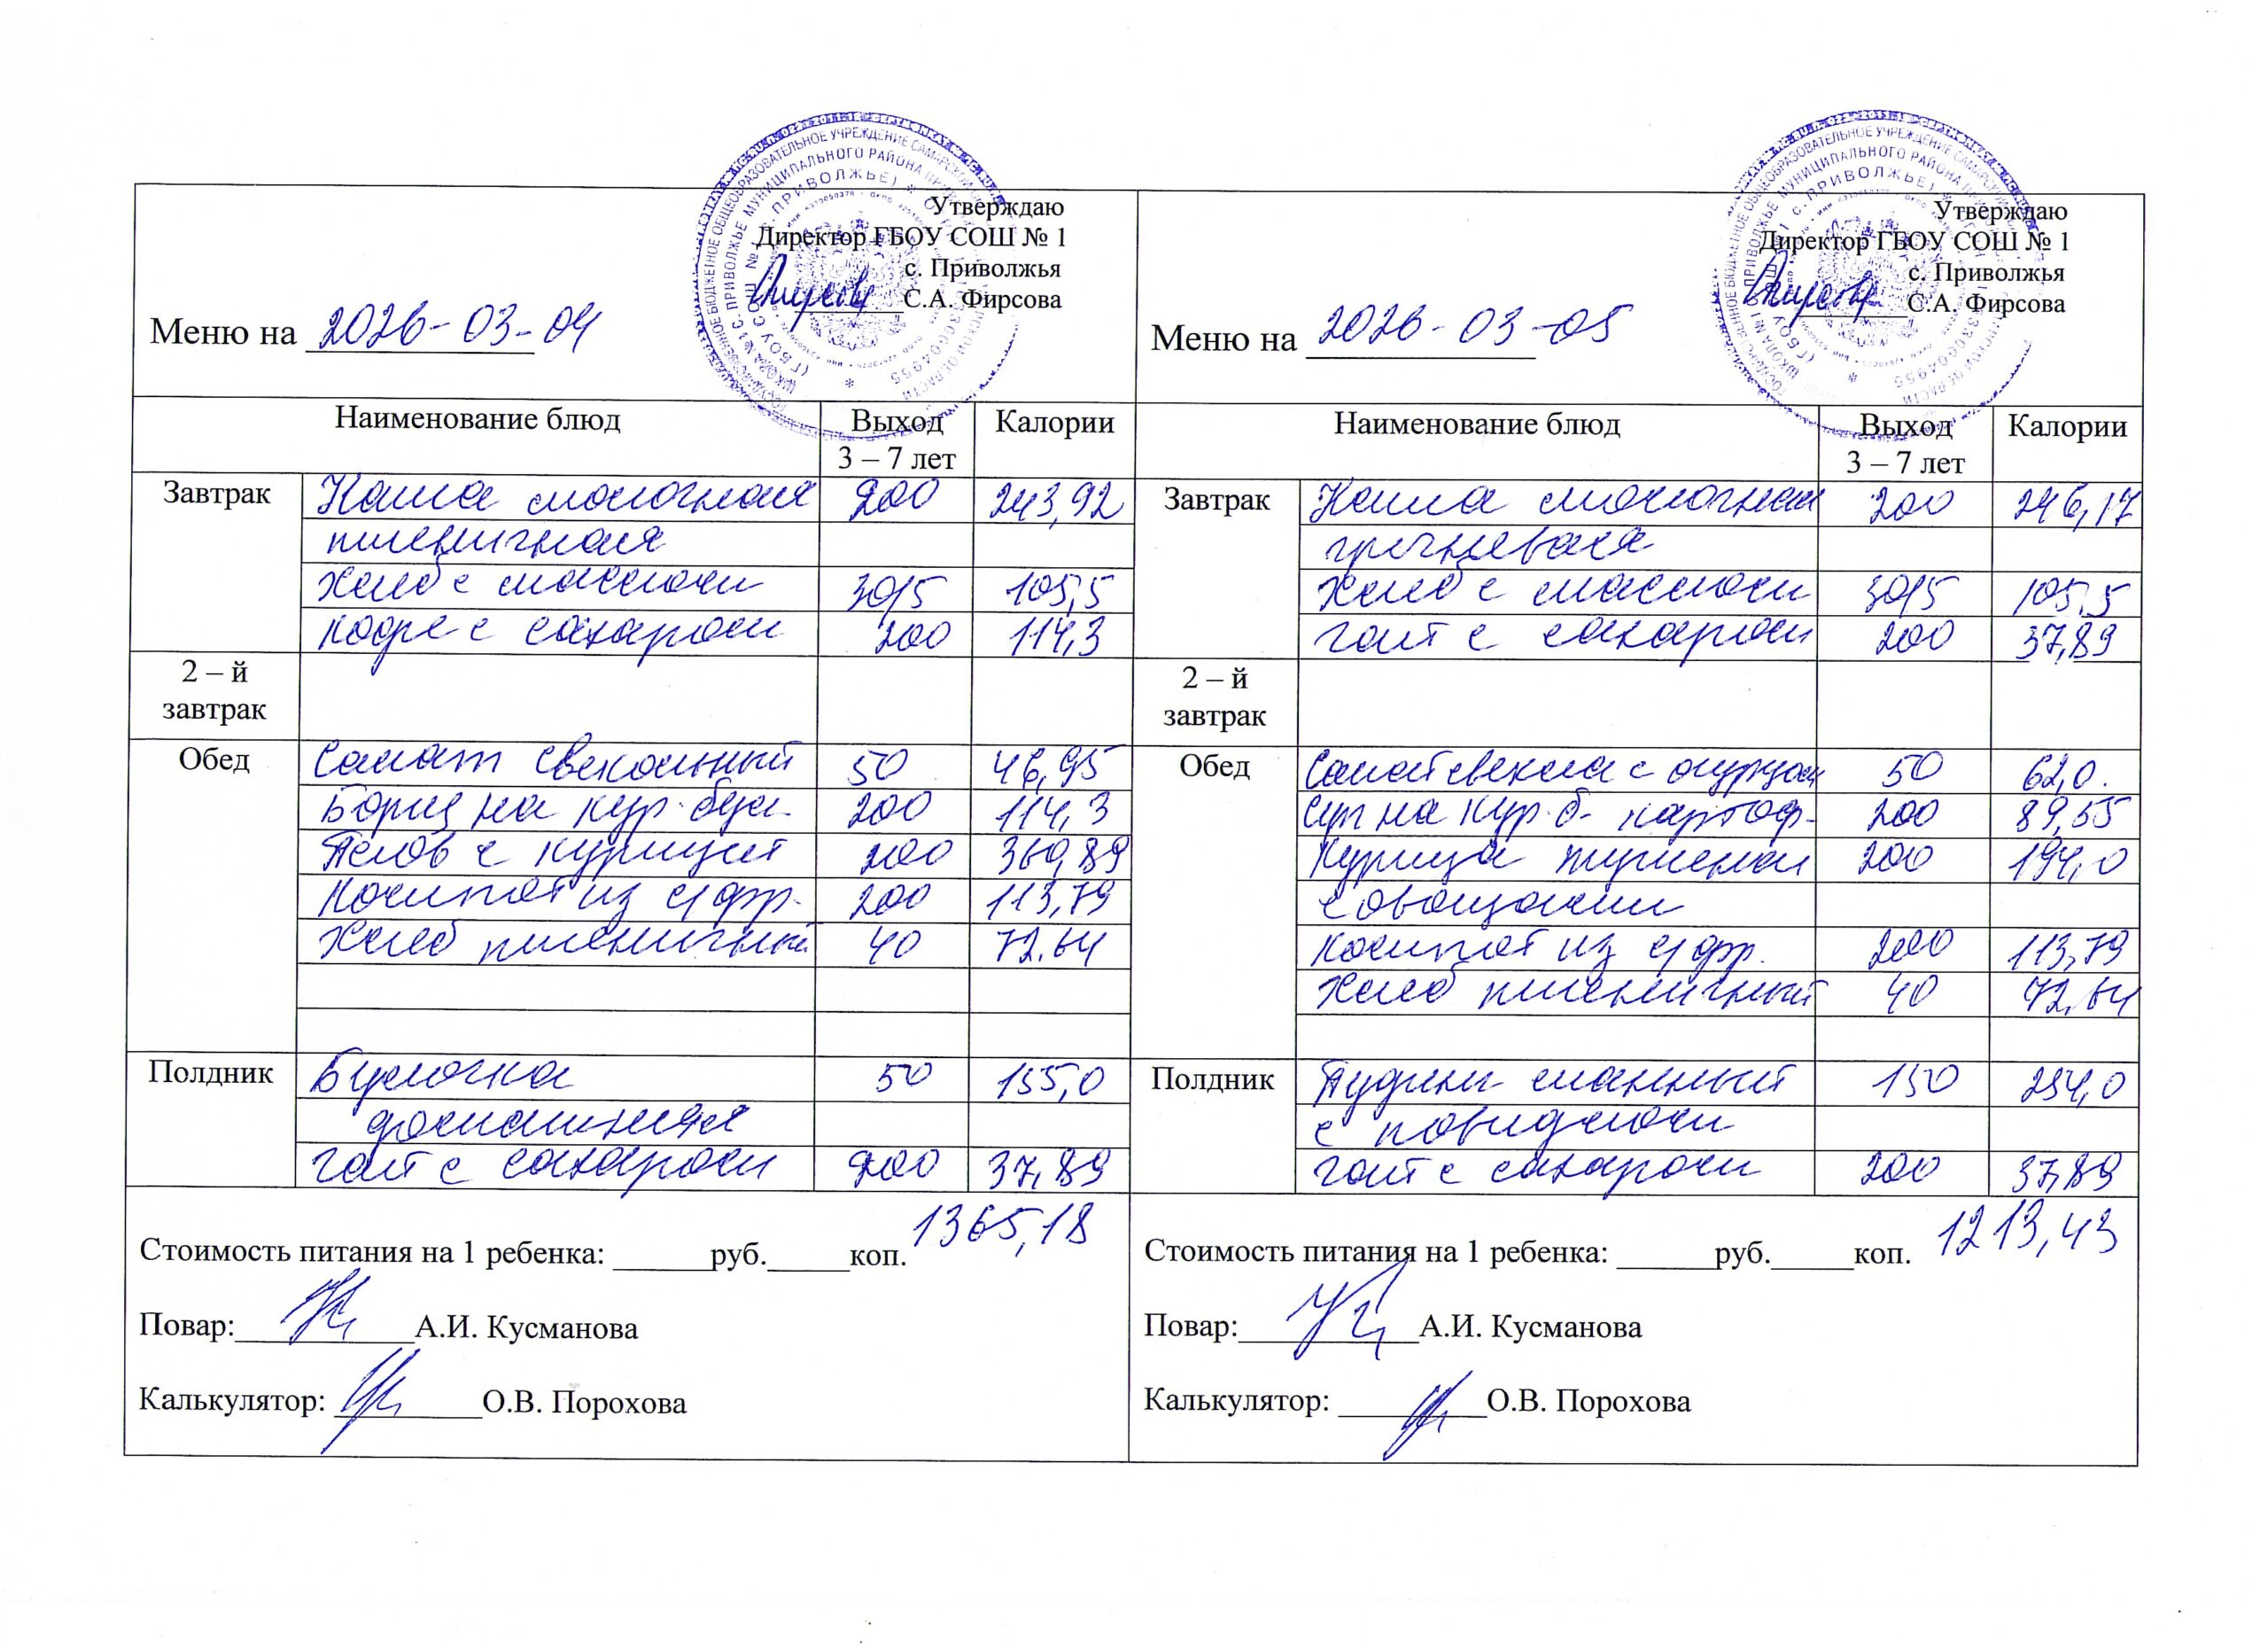 Утверждаю
Директор ГБОУ СОШ № 1
с. Приволжья
С.А. Фирсова
Меню на 2026-03-04
Наименование блюд Выход 3 – 7 лет Калории
Завтрак Каша молочная 200 243,92
пшеничная
Хлеб с маслом 30/5 105,5
кофе с сахаром 200 114,3
2 – й завтрак
Обед Салат свекольный 50 46,95
Борщ на кур. бул. 200 114,3
Плов с курицей 200 360,89
Компот из с/фр. 200 113,79
Хлеб пшеничный 40 72.64
Полдник Булочка 50 155,0
домашняя
чай с сахаром 200 37,89
1365,18
Стоимость питания на 1 ребенка: ______руб._____коп.
Повар:___________А.И. Кусманова
Калькулятор: _________О.В. Порохова
Утверждаю
Директор ГБОУ СОШ № 1
с. Приволжья
С.А. Фирсова
Меню на 2026-03-05
Наименование блюд Выход 3 – 7 лет Калории
Завтрак Каша молочная 200 246,17
гречневая
Хлеб с маслом 30/5 105,5
чай с сахаром 200 37,89
2 – й завтрак
Обед Салат свекла с огурцом 50 62,0.
Суп на кур. б. картоф. 200 89,55
Курица тушеная 200 194,0
с овощами
компот из с/фр. 200 113,79
Хлеб пшеничный 40 72,64
Полдник Пудинг манный 150 254,0
с повидлом
чай с сахаром 200 37,89
1213,43
Стоимость питания на 1 ребенка: ______руб._____коп.
Повар:___________А.И. Кусманова
Калькулятор: _________О.В. Порохова